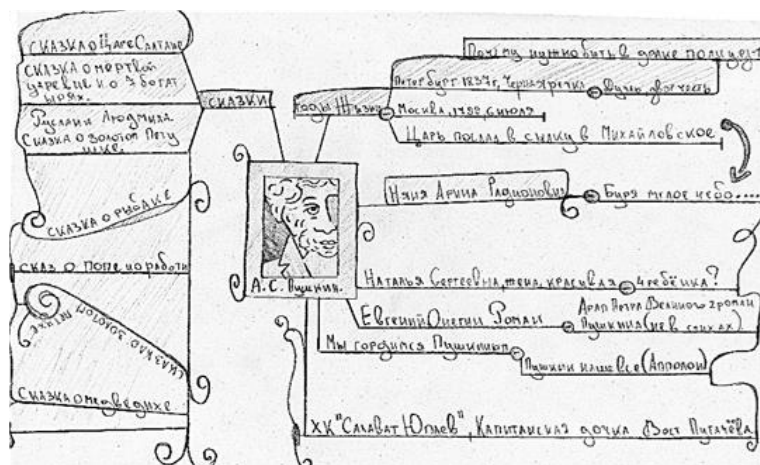 СКАЗКА О ЦАРЕ САЛТАНЕ
СКАЗКА О МЁРТВОЙ
ЦАРЕВНЕ И О 7 БОГАТ
ЫРЯХ.
РУСЛАН И ЛЮДМИЛА
СКАЗКА О ЗОЛОТОМ ПЕТУ
ШКЕ.
СКАЗКА О РЫБКЕ
СКАЗ О ПОПЕ И О РАБОТН
СКАЗКА О ЗОЛОТОМ ПЕТУХЕ
СКАЗКА О МЕДВЕДИХЕ
СКАЗКИ
А. С. Пушкин.
годы Жизни
Почему нужно бить в
Петербург 1837г, Черная речка
Дуэль
Москва, 1799, 6 июля
Царь послал в сылку в Михайловское
Няня Арина Радионовна
Буря мглою небо....
Наталья Сергеевна, жена, красивая
4 ребёнка?
Евгений Онегин Роман
Арап Петра Великого
Пушкина (не в стихах)
Мы гордимся Пушкиным
Пушкин наше все (Апполон)
ХК "Салават Юлаев", Капитанская дочка Вост Пугачёва